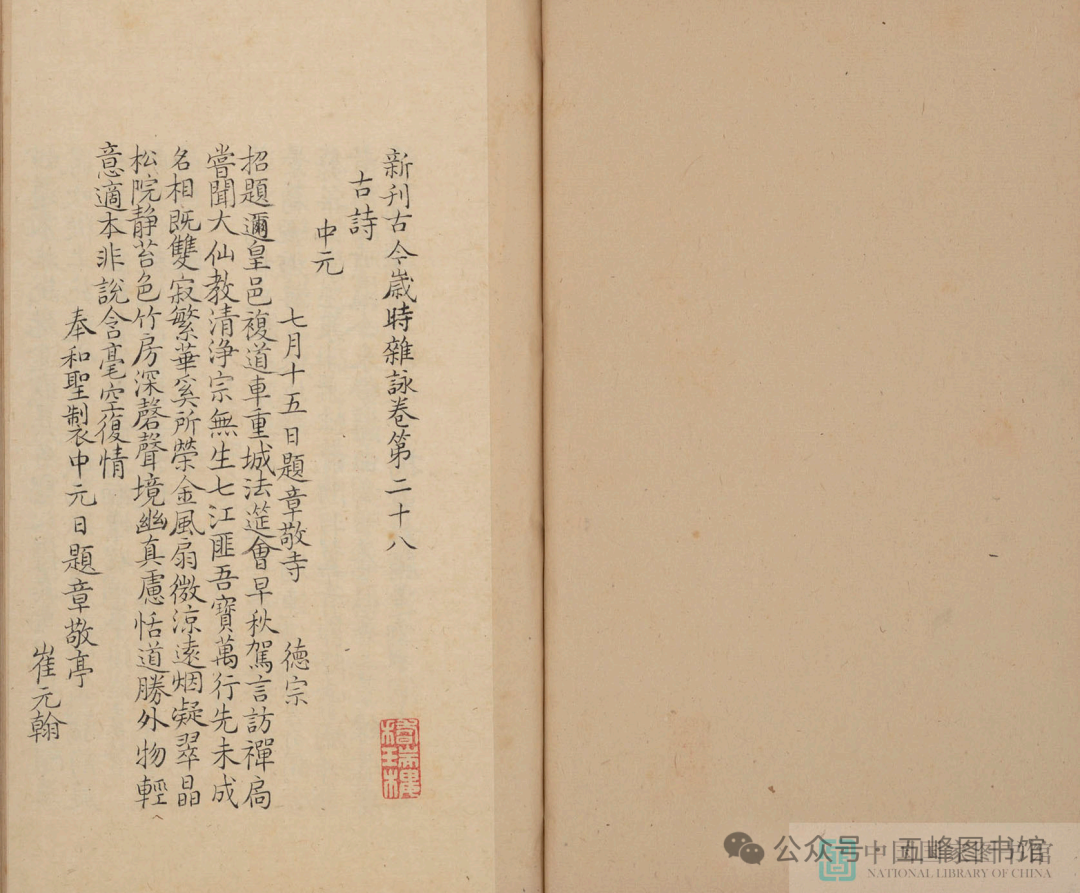 新刊古今歲時雜詠卷第二十八
古詩
中元
七月十五日題章敬寺 德宗
招題邇皇邑複道車重城法筵會早秋駕言訪禪扃
嘗聞大仙教清淨宗無生七江匪吾寶萬行先未成
名相既雙寂繁華奚所榮金風扇微涼遠烟凝翠晶
松院静苔色竹房深磬聲境幽真慮恬道勝外物輕
意適本非說含毫空復情
奉和聖製中元日題章敬亭
崔元翰
公众号·五峰图书馆
中国国家图书馆
NATIONAL LIBRARY OF CHINA